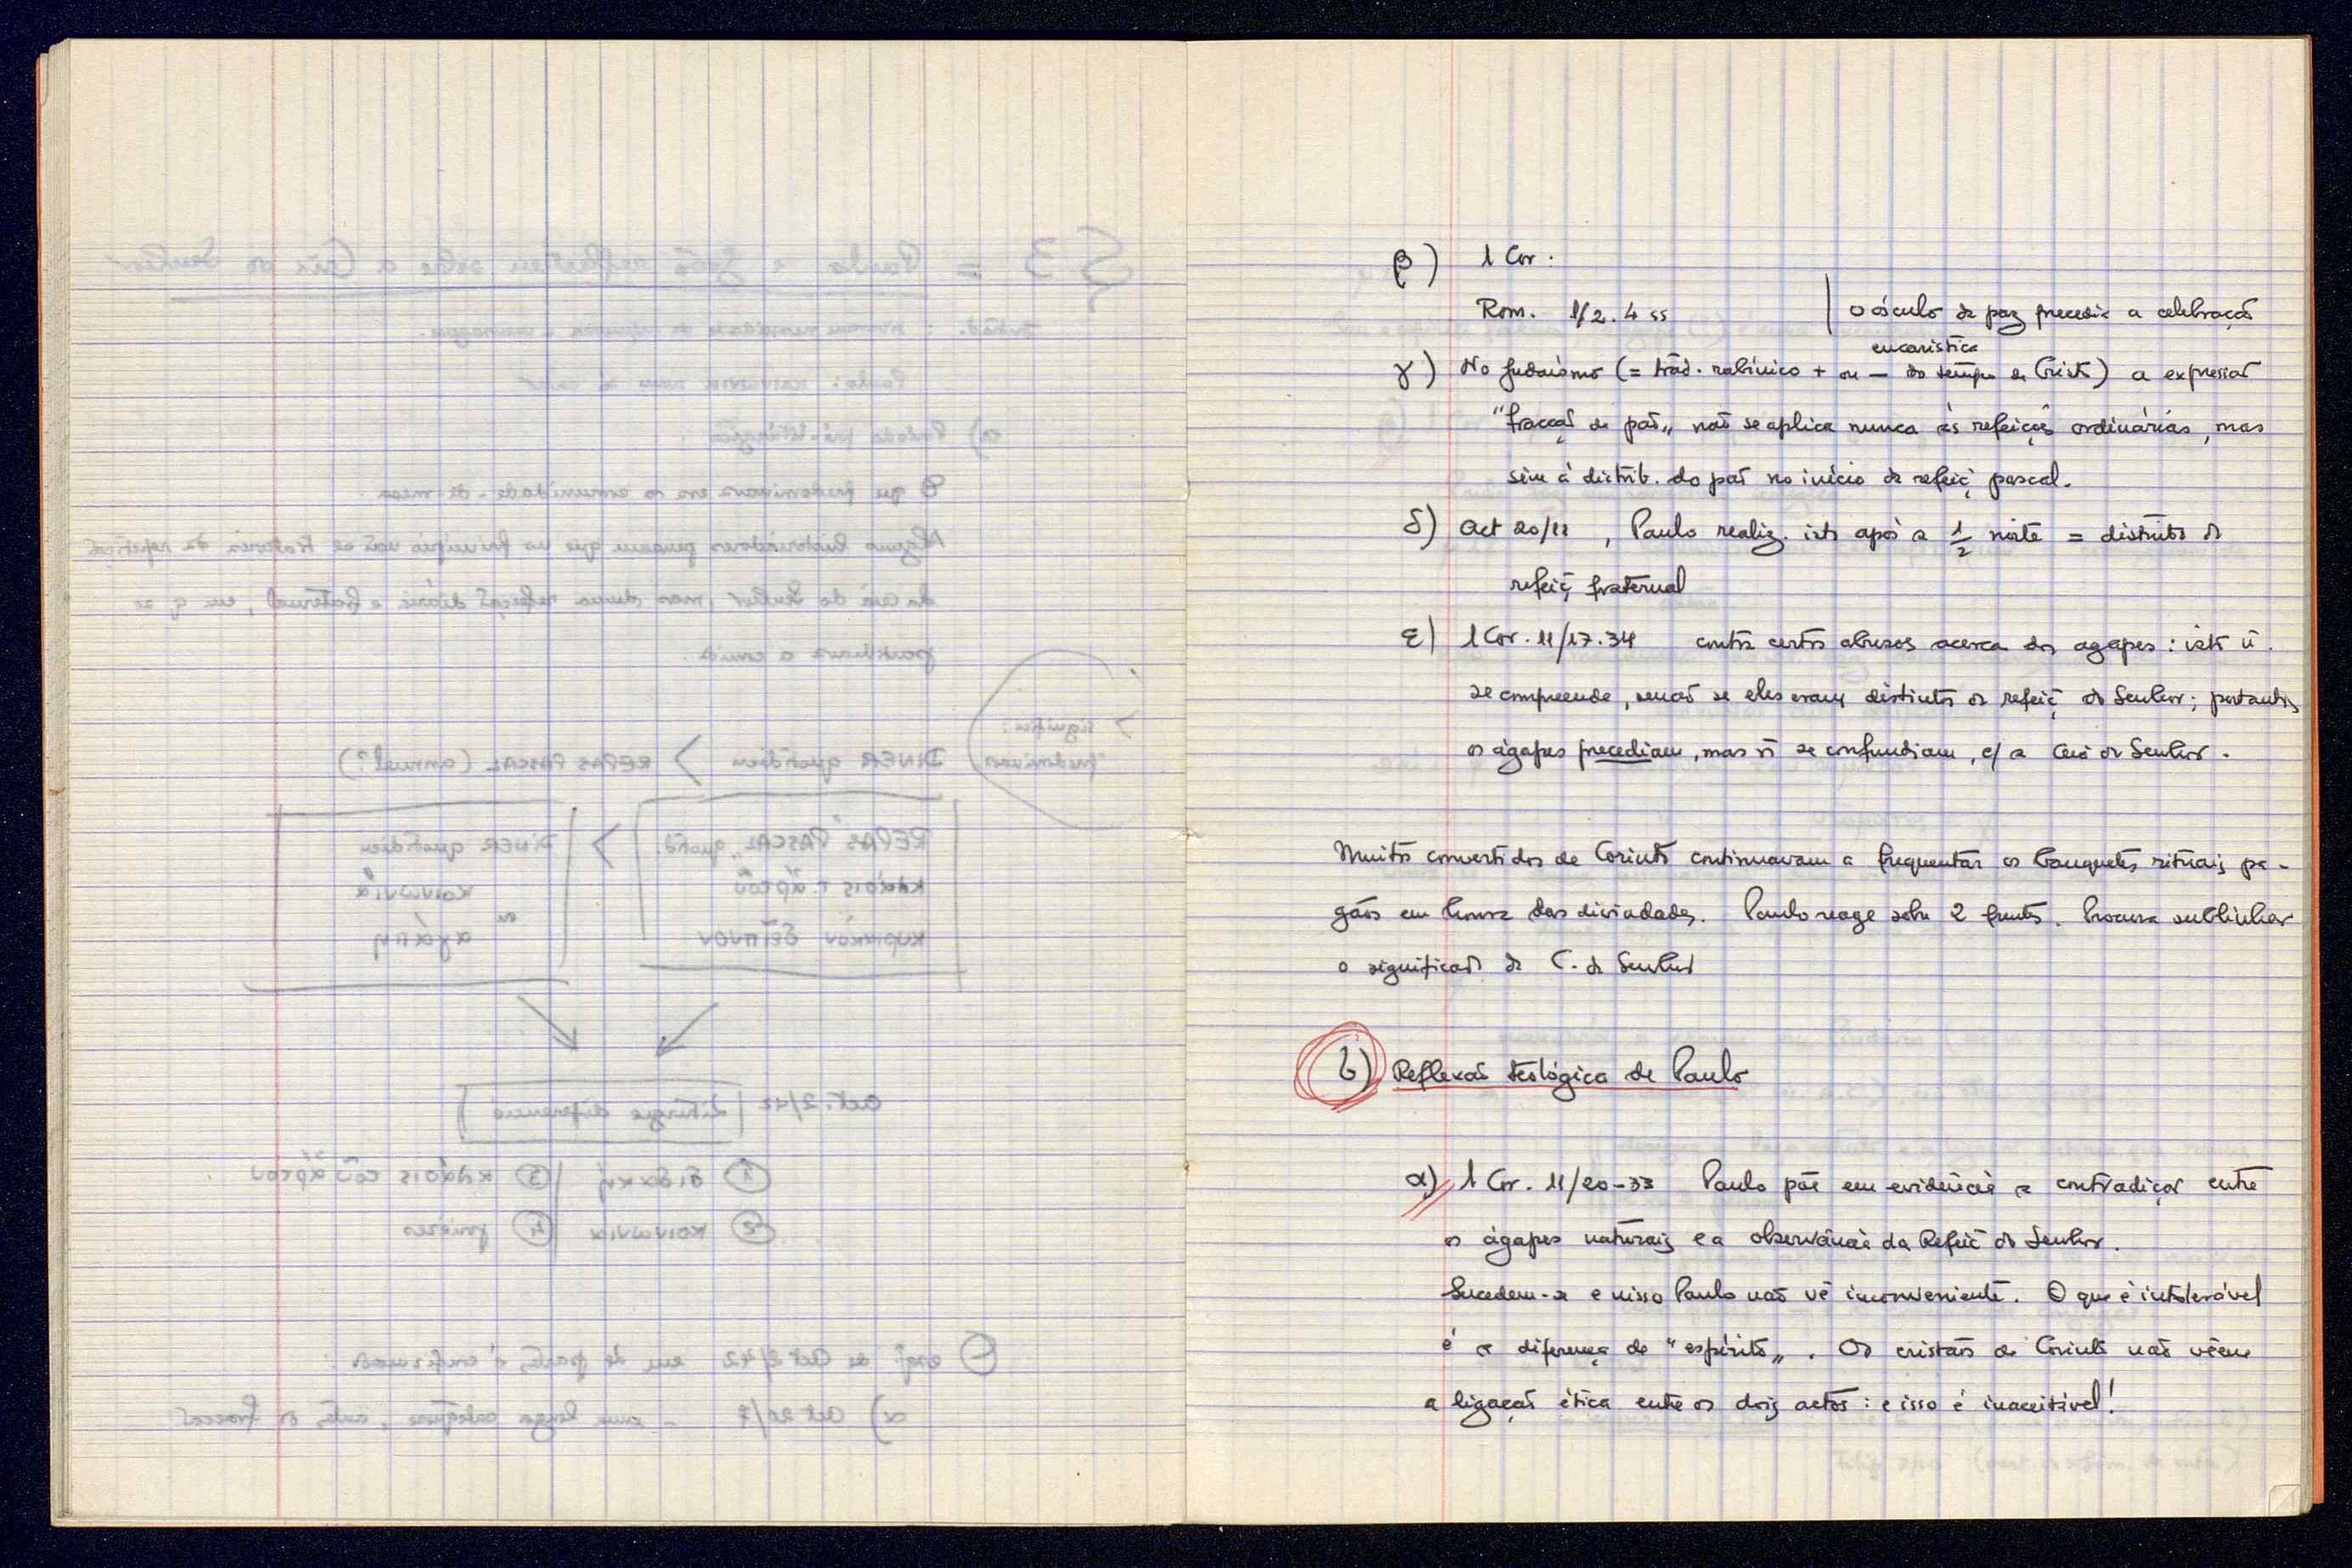 β) 1 Cor:
Rom. 1/2.4 ss | o ósculo de paz precedia a celebração
eucarística
γ) No Judaísmo (= trad. rabínico + ou – do tempo de Cristo) a expressão
"fracção de pão„ não se aplica nunca às refeições ordinárias, mas
sim à distrib. do pão no início da refeiç. pascal.
δ) Act 20/11, Paulo realiz. isto após a 1/2 noite = distinto da
refeiç. fraternal
ε) 1 Cor. 11/17.34 contra certos abusos acerca dos agapes: isto ñ
se compreende, senão se eles eram distintos da refeiç. do Senhor; portanto,
os ágapes precediam, mas ñ se confundiam, c/ a Ceia do Senhor.
Muitos convertidos de Corinto continuavam a frequentar os banquetes rituais pa-
gãos em honra das divindades. Paulo reage sobre 2 frentes. Procura sublinhar
o significado da C. do Senhor
b) Reflexão teológica de Paulo
α) 1 Cor. 11/20-33 Paulo põe em evidência a contradição entre
os ágapes naturais e a observância da Refeiç. do Senhor.
Sucedem-se e nisso Paulo não vê inconveniente. O que é intolerável
é a diferença de "espírito„. Os cristãos de Corinto não vêem
a ligação ética entre os dois actos: e isso é inaceitável!